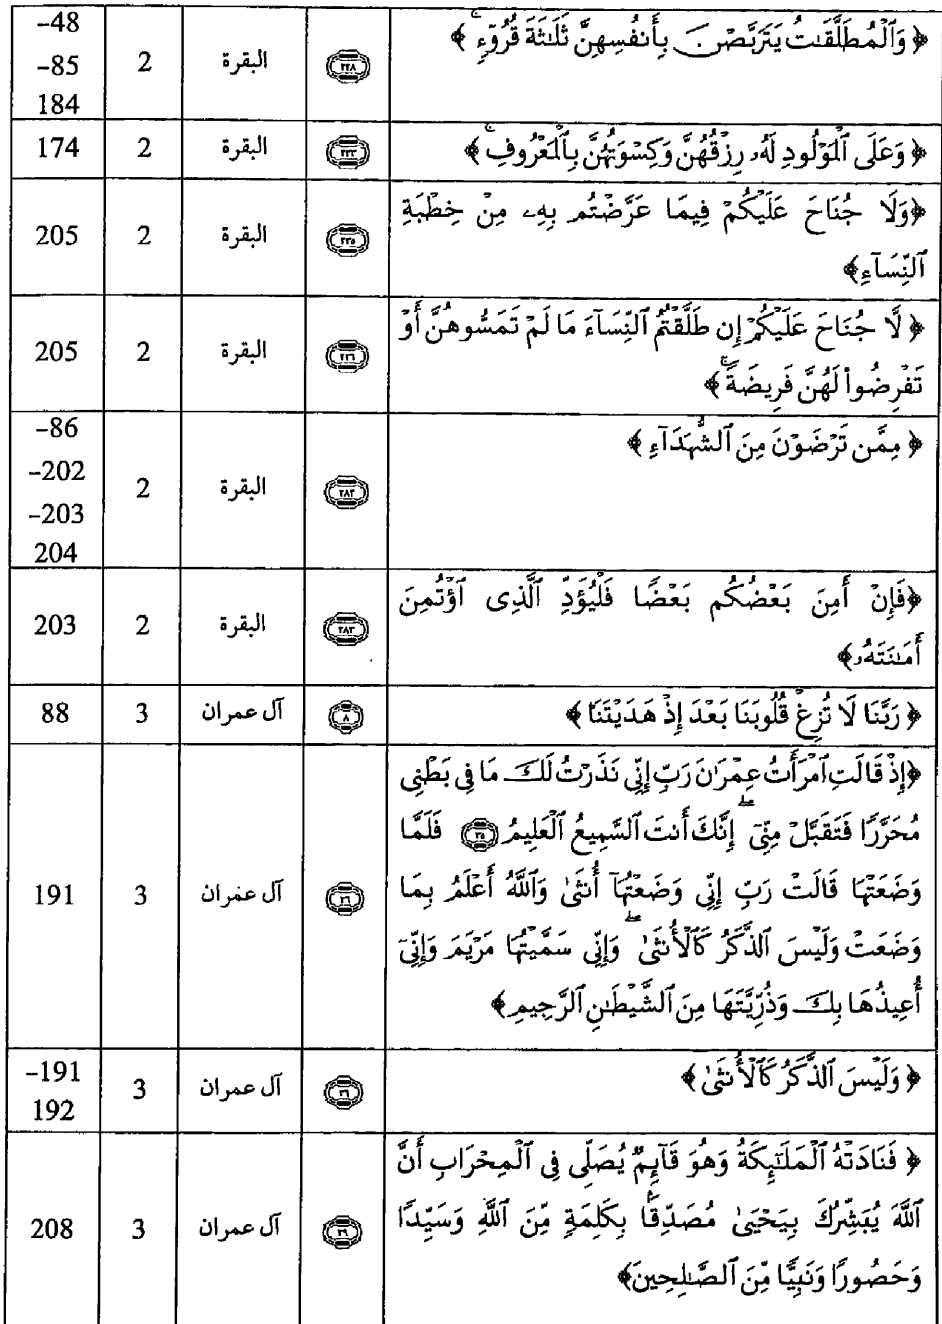 ﴿ وَٱلْمُطَلَّقَٰتُ يَتَرَبَّصْنَ بِأَنفُسِهِنَّ ثَلَٰثَةَ قُرُوٓءٍ ﴾ ٢٢٨ البقرة 2 48-
85-
184
﴿ وَعَلَى ٱلْمَوْلُودِ لَهُۥ رِزْقُهُنَّ وَكِسْوَتُهُنَّ بِٱلْمَعْرُوفِ ﴾ ٢٣٣ البقرة 2 174
﴿وَلَا جُنَاحَ عَلَيْكُمْ فِيمَا عَرَّضْتُم بِهِۦ مِنْ خِطْبَةِ
ٱلنِّسَآءِ﴾ ٢٣٥ البقرة 2 205
﴿ لَّا جُنَاحَ عَلَيْكُمْ إِن طَلَّقْتُمُ ٱلنِّسَآءَ مَا لَمْ تَمَسُّوهُنَّ أَوْ
تَفْرِضُوا۟ لَهُنَّ فَرِيضَةً ﴾ ٢٣٦ البقرة 2 205
﴿ مِمَّن تَرْضَوْنَ مِنَ ٱلشُّهَدَآءِ ﴾ ٢٨٢ البقرة 2 86-
202-
203-
204
﴿فَإِنْ أَمِنَ بَعْضُكُم بَعْضًا فَلْيُؤَدِّ ٱلَّذِى ٱؤْتُمِنَ
أَمَٰنَتَهُۥ﴾ ٢٨٣ البقرة 2 203
﴿ رَبَّنَا لَا تُزِغْ قُلُوبَنَا بَعْدَ إِذْ هَدَيْتَنَا ﴾ ٨ آل عمران 3 88
﴿إِذْ قَالَتِ ٱمْرَأَتُ عِمْرَٰنَ رَبِّ إِنِّى نَذَرْتُ لَكَ مَا فِى بَطْنِى
مُحَرَّرًا فَتَقَبَّلْ مِنِّىٓ ۖ إِنَّكَ أَنتَ ٱلسَّمِيعُ ٱلْعَلِيمُ ٣٥ فَلَمَّا
وَضَعَتْهَا قَالَتْ رَبِّ إِنِّى وَضَعْتُهَآ أُنثَىٰ وَٱللَّهُ أَعْلَمُ بِمَا
وَضَعَتْ وَلَيْسَ ٱلذَّكَرُ كَٱلْأُنثَىٰ ۖ وَإِنِّى سَمَّيْتُهَا مَرْيَمَ وَإِنِّىٓ
أُعِيذُهَا بِكَ وَذُرِّيَّتَهَا مِنَ ٱلشَّيْطَٰنِ ٱلرَّجِيمِ﴾ ٣٦ آل عمران 3 191
﴿ وَلَيْسَ ٱلذَّكَرُ كَٱلْأُنثَىٰ ﴾ ٣٦ آل عمران 3 191-
192
﴿ فَنَادَتْهُ ٱلْمَلَٰٓئِكَةُ وَهُوَ قَآئِمٌ يُصَلِّى فِى ٱلْمِحْرَابِ أَنَّ
ٱللَّهَ يُبَشِّرُكَ بِيَحْيَىٰ مُصَدِّقًۢا بِكَلِمَةٍ مِّنَ ٱللَّهِ وَسَيِّدًا
وَحَصُورًا وَنَبِيًّا مِّنَ ٱلصَّٰلِحِينَ﴾ ٣٩ آل عمران 3 208